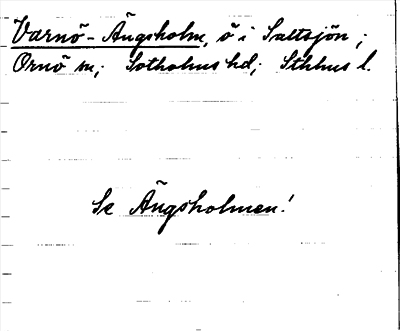 Varnö-Ängsholm, ö i Saltsjön;
Ornö sn; Sotholms hd; Sthlms l.
Se Ängsholmen!